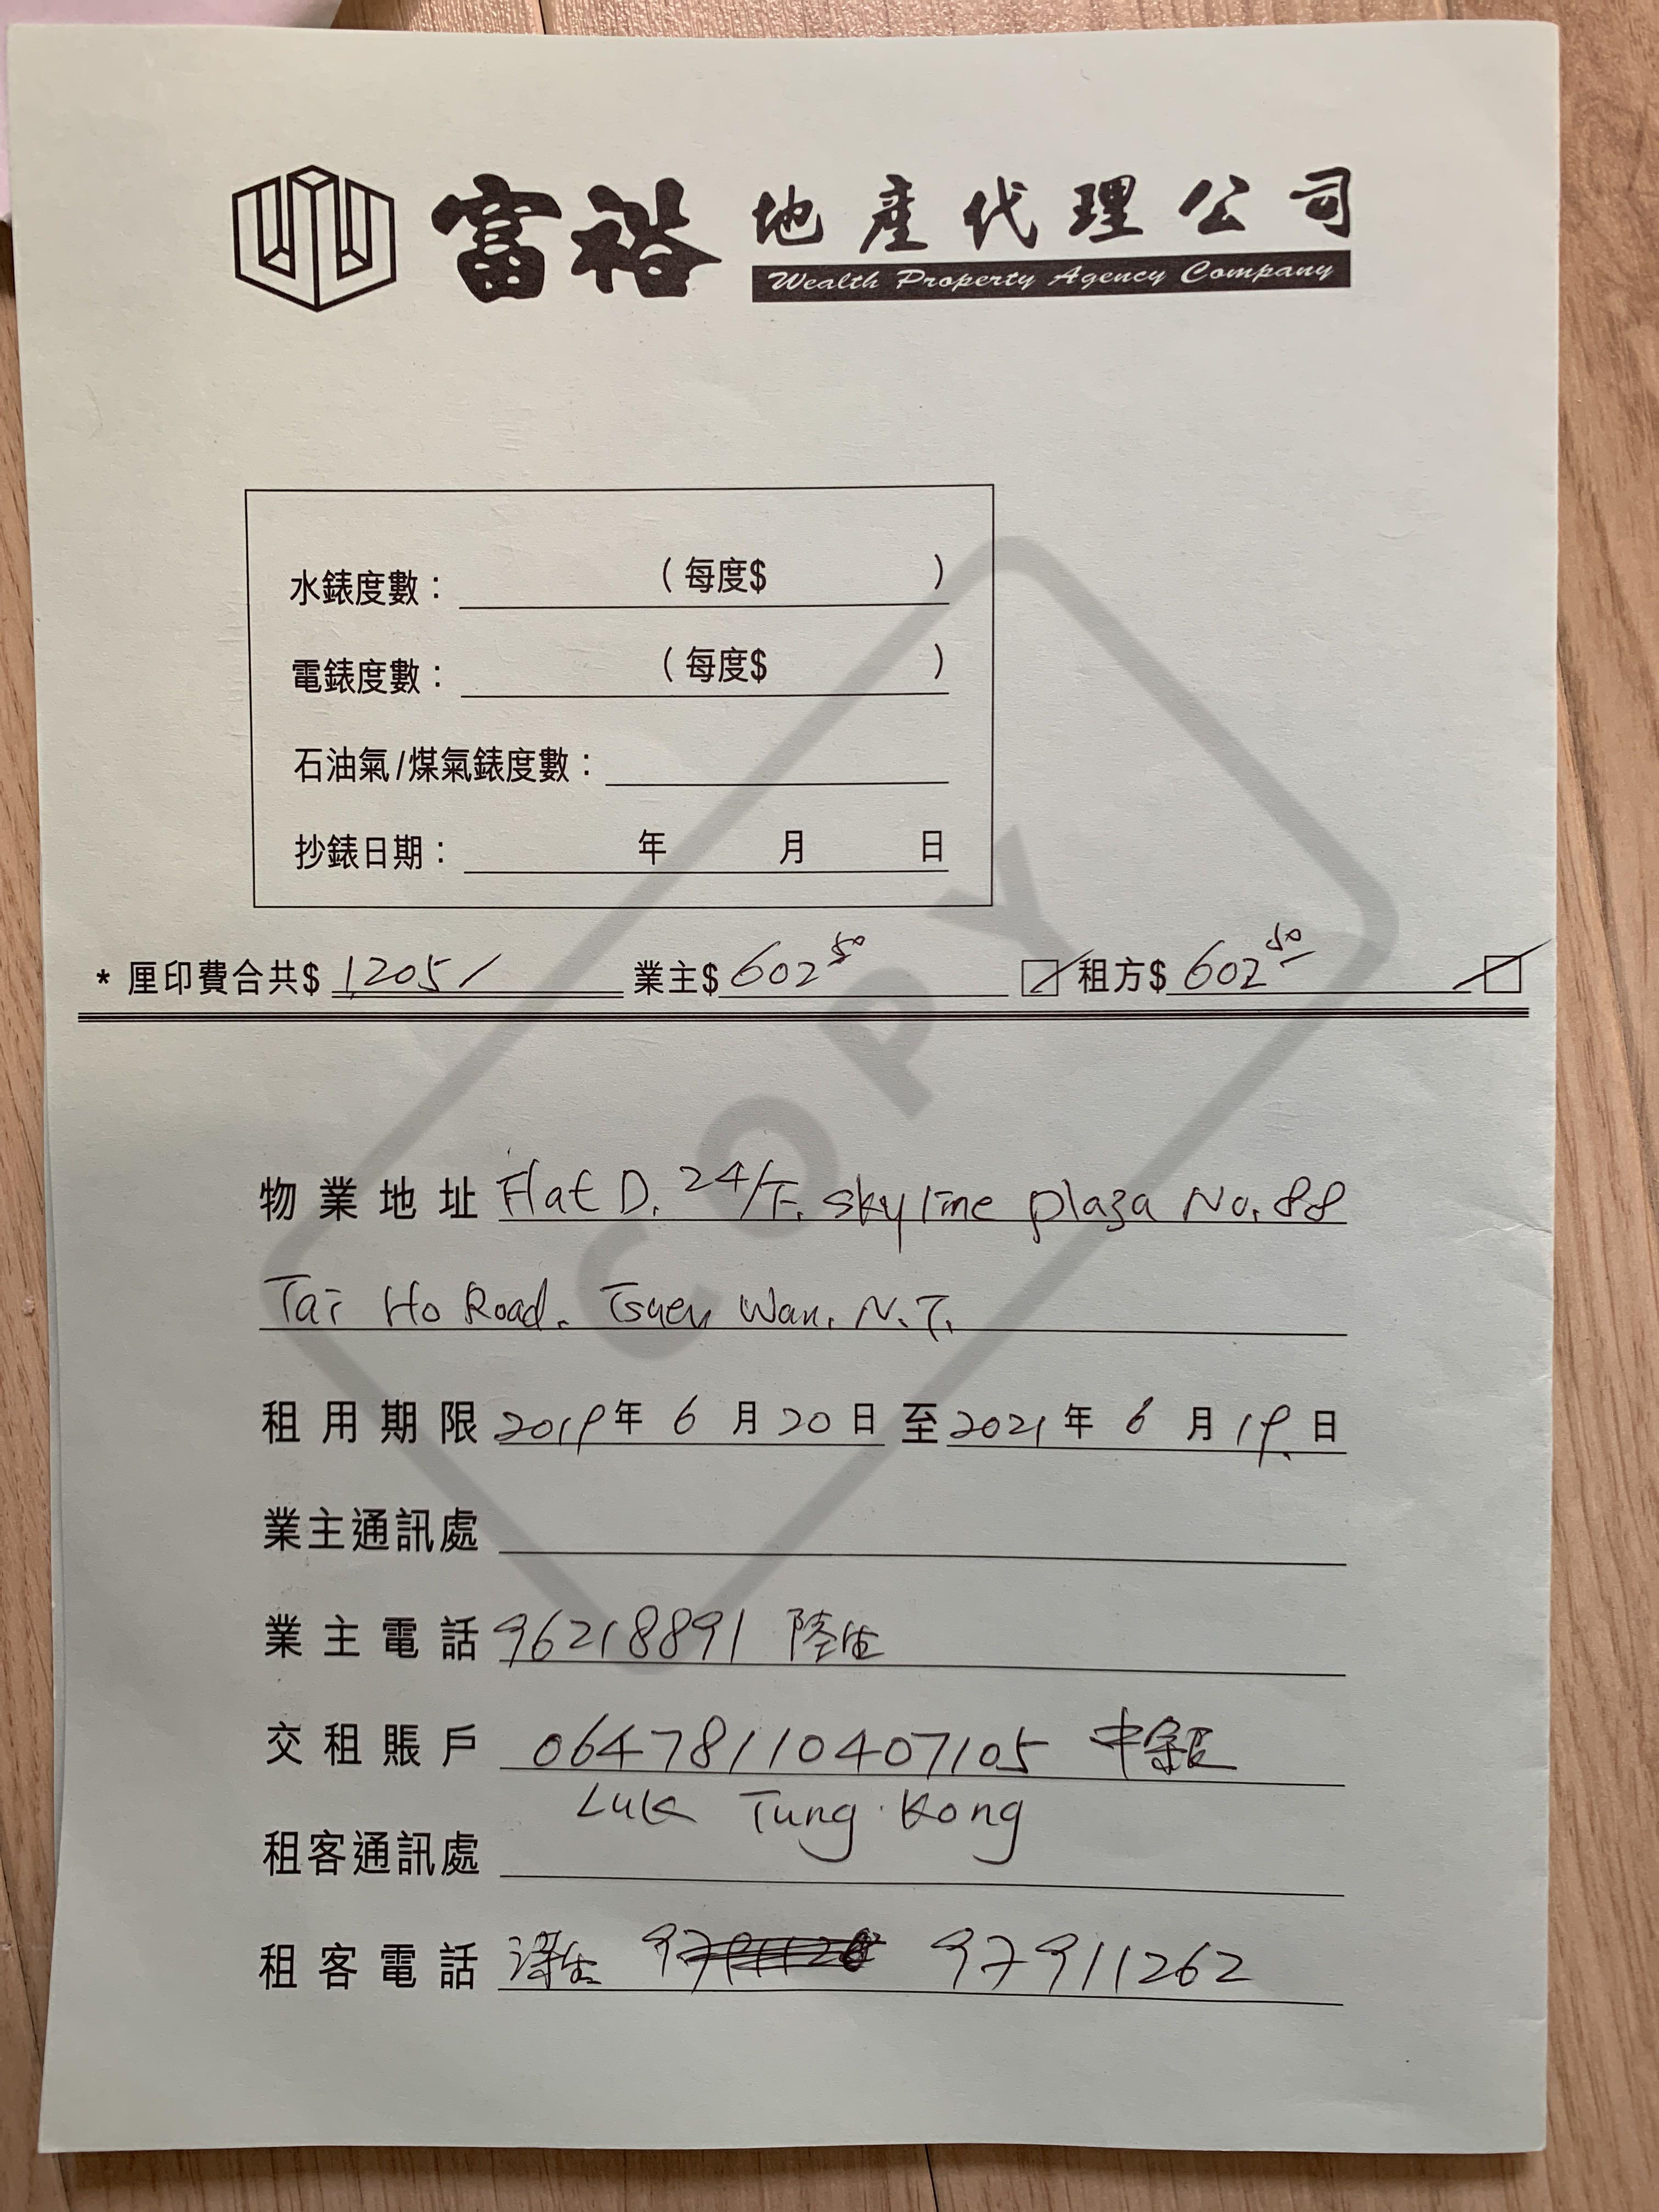 富裕 地產代理公司
Wealth Property Agency Company
水錶度數： （每度$ ）
電錶度數： （每度$ ）
石油氣/煤氣錶度數：
抄錶日期： 年 月 日
* 厘印費合共$ 1,205/ 業主$ 602.50 租方$ 602.50
COPY
物業地址 Flat D. 24/F. skyline plaza No. 88
Tai Ho Road. Tsuen Wan. N.T.
租用期限 2019年 6 月 20 日 至 2021 年 6 月 19. 日
業主通訊處
業主電話 96218891 陸生
交租賬戶 06478110407105 中銀
Luk Tung Kong
租客通訊處
租客電話 97911262